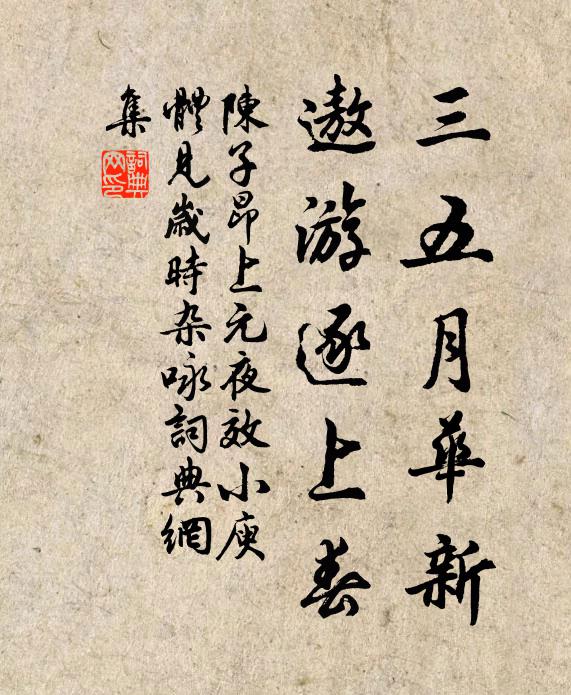 三五月華新
遨游逐上春
陳子昂上元夜效小庾
體見歲時杂咏詞典網
集
詞典
网印